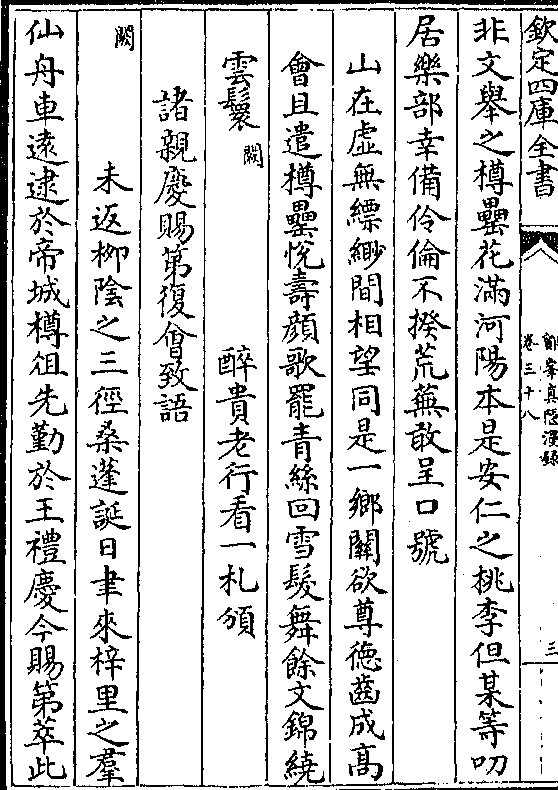 欽定四庫全書
卷三十八
三
非文舉之樽罍花滿河陽本是安仁之桃李但某等叨
居樂部幸備伶倫不揆荒蕪敢呈口號
山在虛無縹緲間相望同是一鄉關欲尊德齒成髙
會且遣樽罍悅壽顔歌罷青絲回雪髮舞餘文錦繞
雲鬟闕醉貴老行看一札頒
諸親慶賜第復會致語
闕未返柳陰之三徑桑蓬誕日聿來梓里之羣
仙舟車遠逮於帝城樽俎先勤於王禮慶今賜第萃此